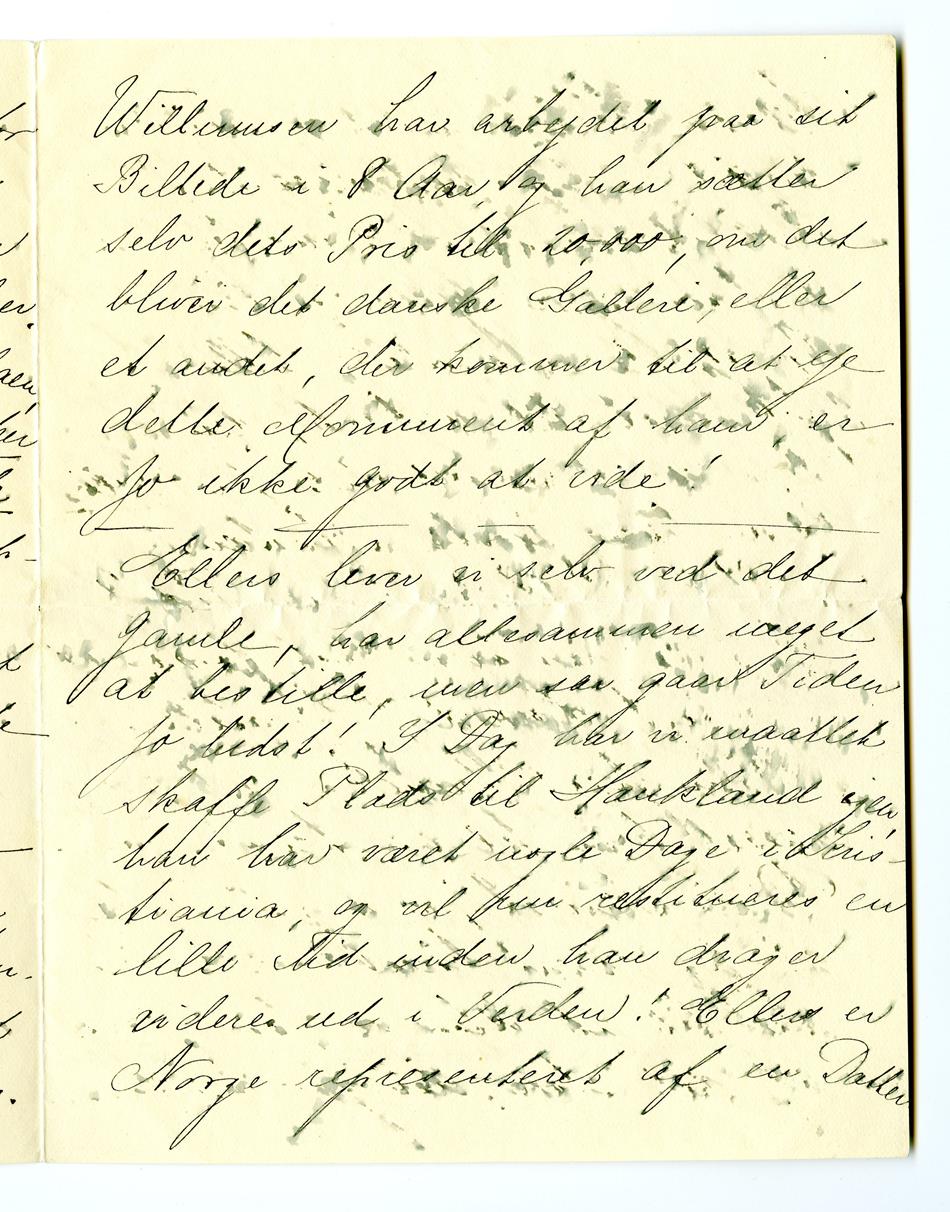 Willumsen har arbejdet paa sit
Billede i 8 Aar, og han sætter
selv dets Pris til 20,000, om det
bliver det danske Galleri, eller
et andet, der kommer til at eje
dette Monument af ham, er
jo ikke godt at vide!
Ellers lever vi selv ved det
gamle, har allesammen meget
at bestille, men saa gaar Tiden
jo bedst! I Dag har vi maattet
skaffe Plads til Haukland igen,
han har været nogle Dage i Kris-
tiania, og vil nu restitueres en
lille Tid inden han drager
videre ud i Verden! Ellers er
Norge repræsenteret af en Datter